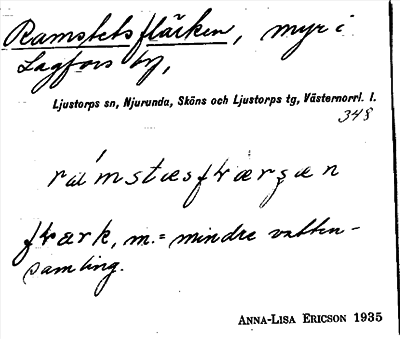 Ramstetsflärken, myr i
Lagfors by,
Ljustorps sn, Njurunda, Sköns och Ljustorps tg, Västernorrl. l.
348
flærk, m. = mindre vatten-
samling.
ANNA-LISA ERICSON 1935